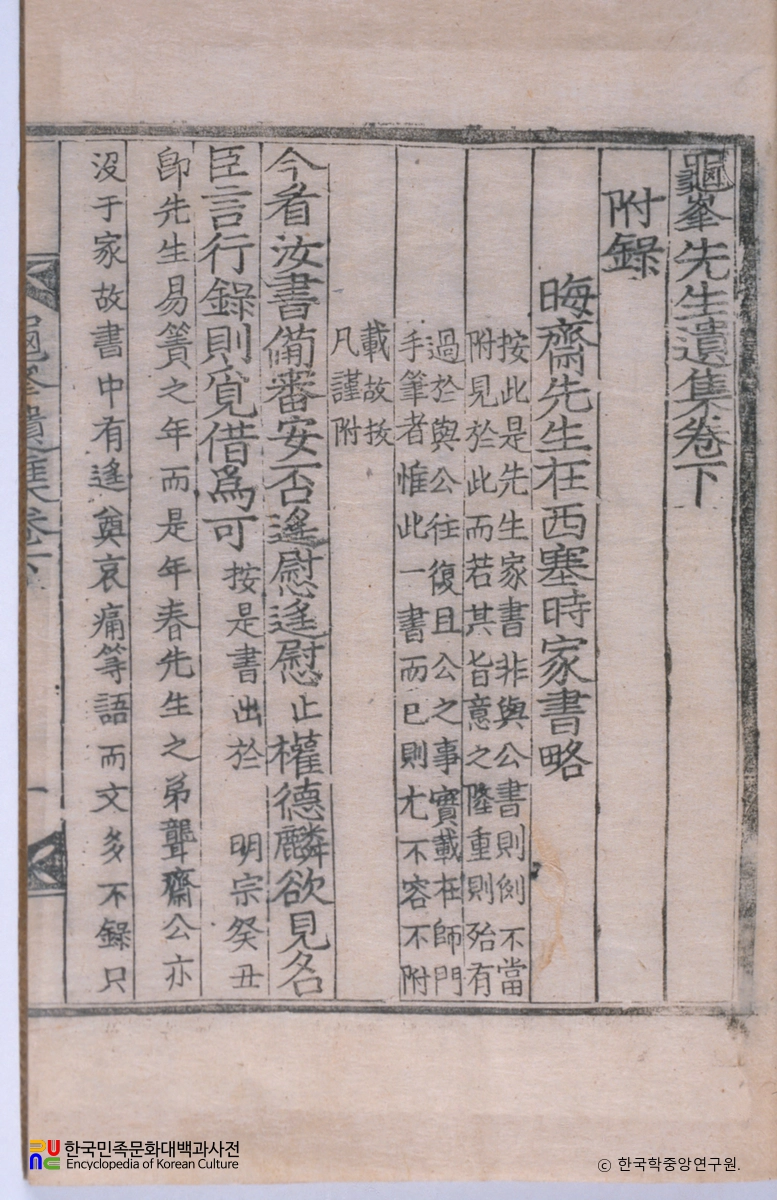 龜峯先生遺集卷下
附錄
晦齋先生在西塞時家書略
按此是先生家書非與公書則例不當
附見於此而若其旨意之隆重則殆有
過於與公往復且公之事實載在師門
手筆者惟此一書而已則尤不容不附
載故拔
凡謹附
今看汝書備審安否遙慰遙慰止權德麟欲見名
臣言行錄則覓借爲可按是書出於 明宗癸丑
卽先生易簀之年而是年春先生之弟聾齋公亦
沒于家故書中有遙奠哀痛等語而文多不錄只
龜峯遺集卷下 一
한국민족문화대백과사전
Encyclopedia of Korean Culture
ⓒ 한국학중앙연구원.